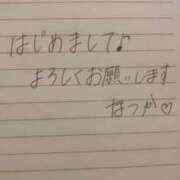 はじめまして♪
よろしくお願いします
なつか♡